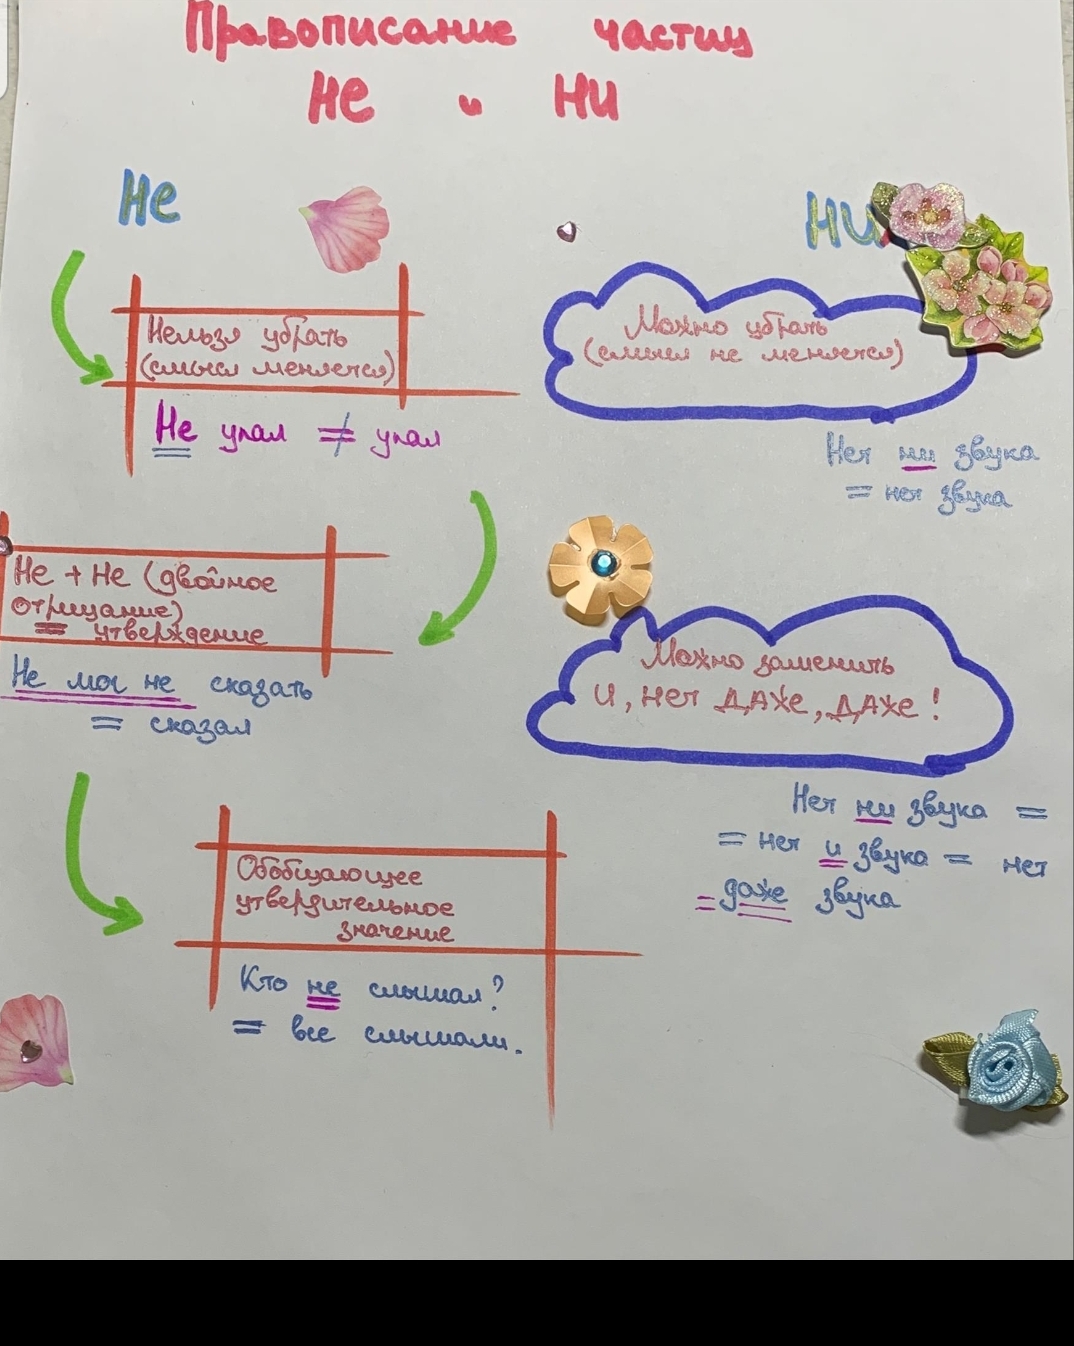 Правописание частиц
НЕ и НИ
Не
Нельзя убрать
(смысл меняется)
Не упал ≠ упал
Не + Не (двойное
отрицание)
= утверждение
Не мог не сказать
= сказал
Обобщающее
утвердительное
значение
Кто не слышал?
= все слышали.
НИ
Можно убрать
(смысл не меняется)
Нет ни звука
= нет звука
Можно заменить
И, НЕТ ДАЖЕ, ДАЖЕ!
Нет ни звука =
= нет и звука = нет
= даже звука